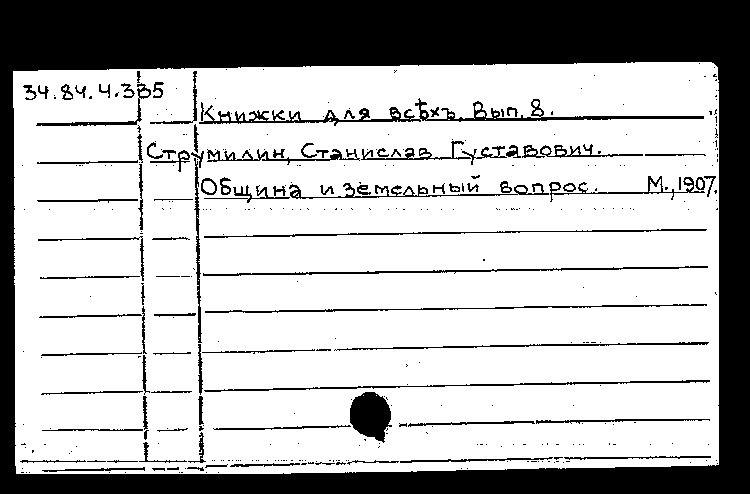 34.84.4.335
Книжки для всѣхъ. Вып. 8.
Струмилин, Станислав Густавович.
Община и земельный вопрос. М., 1907.